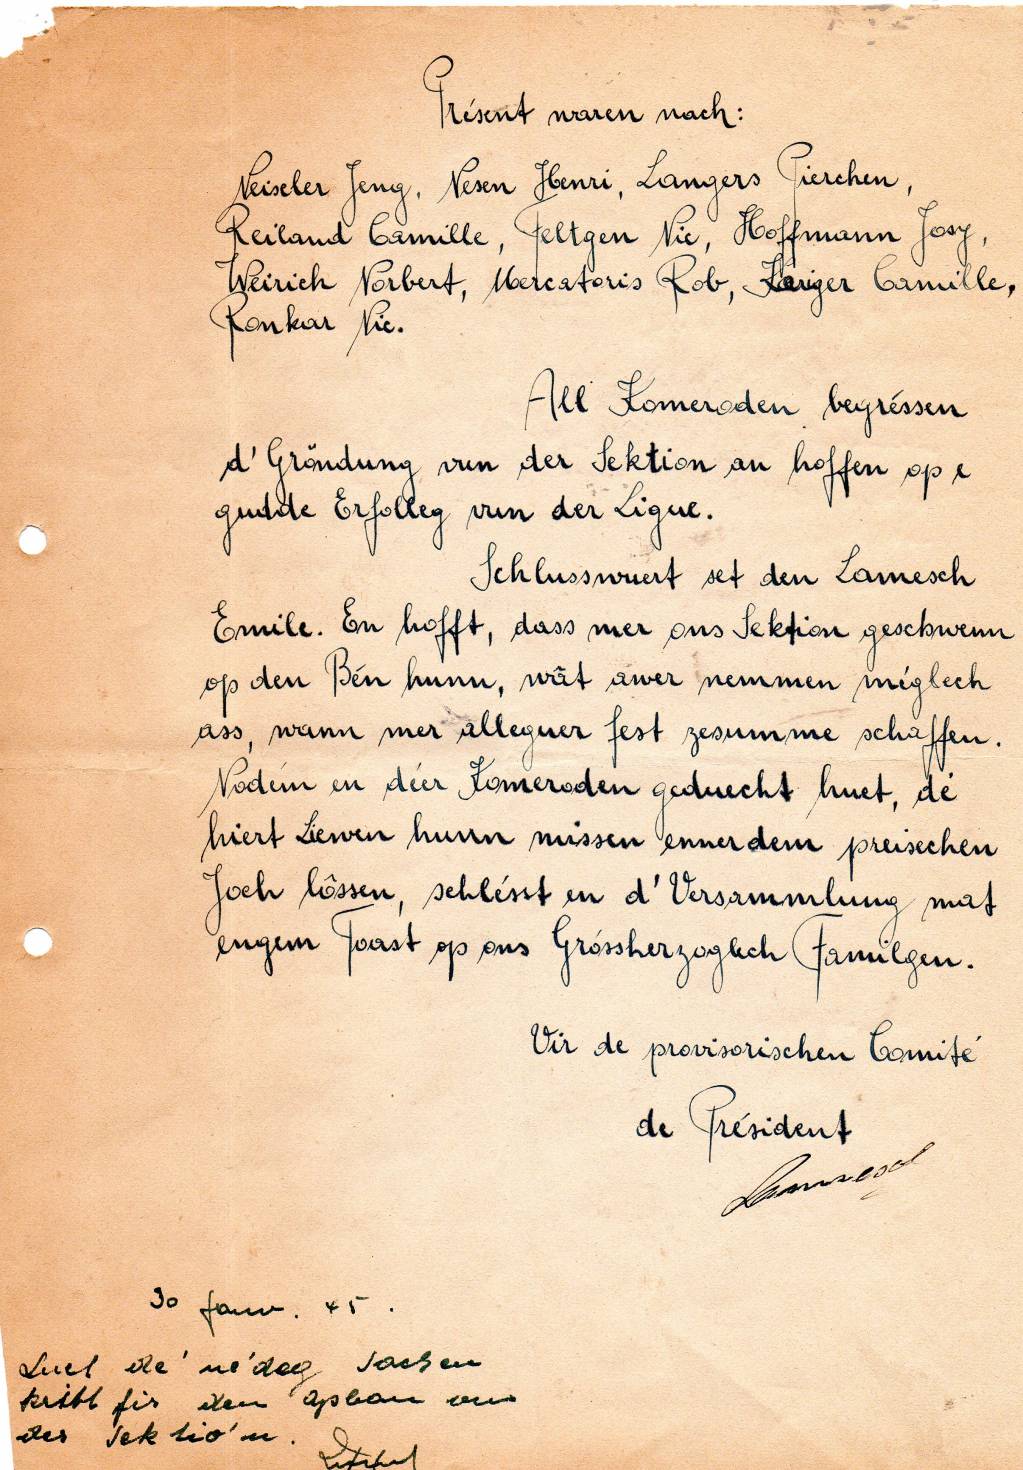 Présent waren nach:
Neiseler Jeng, Nesen Henri, Langers Pierchen,
Reiland Camille, Feltgen Nic, Hoffmann Josy,
Weirich Norbert, Mercatoris Rob, Camille,
Ronkar Nic.
All Komeroden begréssen
d'Gröndung vun der Sektion an hoffen op e
gudde Erfolleg vun der Ligue.
Schlusswuert set den Lamesch
Emile. En hofft, dass mer ons Sektion geschwenn
op den Bén hunn, wât awer nemmen méglech
ass, wann mer alleguer fest zesumme schaffen.
Nodém en déer Komeroden geduecht huet, dé
hiert Liewen hunn missen ennerdem preisechen
Joch lôssen, schlésst en d'Versammlung mat
engem Toast op ons Gróssherzoglech Familgen.
Vir de provisorischen Comité
de Président
Lamesch
30 Janv. 45.
dé nédeg Sachen
kritt fir den Opbau vun
der Sektio'n.